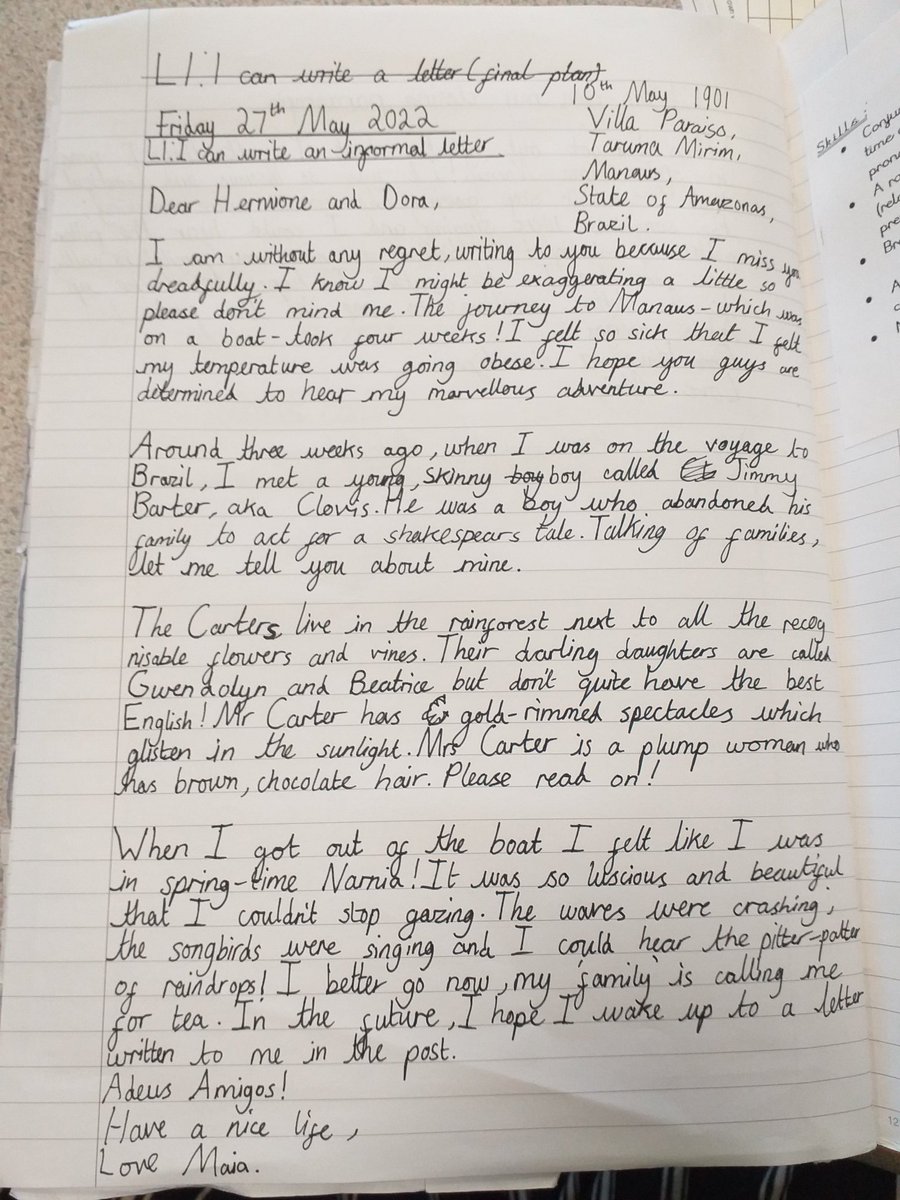 L1: I can write a letter (final plan)
10th May 1901
Friday 27th May 2022
Villa Paraiso,
L1: I can write an informal letter
Taruma Mirim,
Manaus,
Dear Hermione and Dora,
State of Amazonas,
Brazil.
I am without any regret, writing to you because I miss you
dreadfully. I know I might be exaggerating a little so
please don't mind me. The journey to Manaus - which was
on a boat - took four weeks! I felt so sick that I felt
my temperature was going obese. I hope you guys are
determined to hear my marvellous adventure.
Around three weeks ago, when I was on the voyage to
Brazil, I met a young, skinny boy boy called Jimmy
Barter, aka Clovis. He was a boy who abandoned his
family to act for a shakespears tale. Talking of families,
let me tell you about mine.
The Carters live in the rainforest next to all the recog
nisable flowers and vines. Their darling daughters are called
Gwendolyn and Beatrice but don't quite have the best
English! Mr Carter has gold-rimmed spectacles which
glisten in the sunlight. Mrs Carter is a plump woman who
has brown, chocolate hair. Please read on!
When I got out of the boat I felt like I was
in spring-time Narnia! It was so luscious and beautiful
that I couldn't stop gazing. The waves were crashing,
the songbirds were singing and I could hear the pitter-patter
of raindrops! I better go now, my 'family' is calling me
for tea. In the future, I hope I wake up to a letter
written to me in the post.
Adeus Amigos!
Have a nice life,
Love Maia.
Skills:
Conju
time
pron
A
(rel
pre
Br
A
12